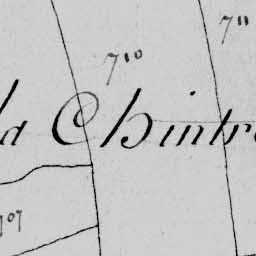 711
710
la Chintre
707